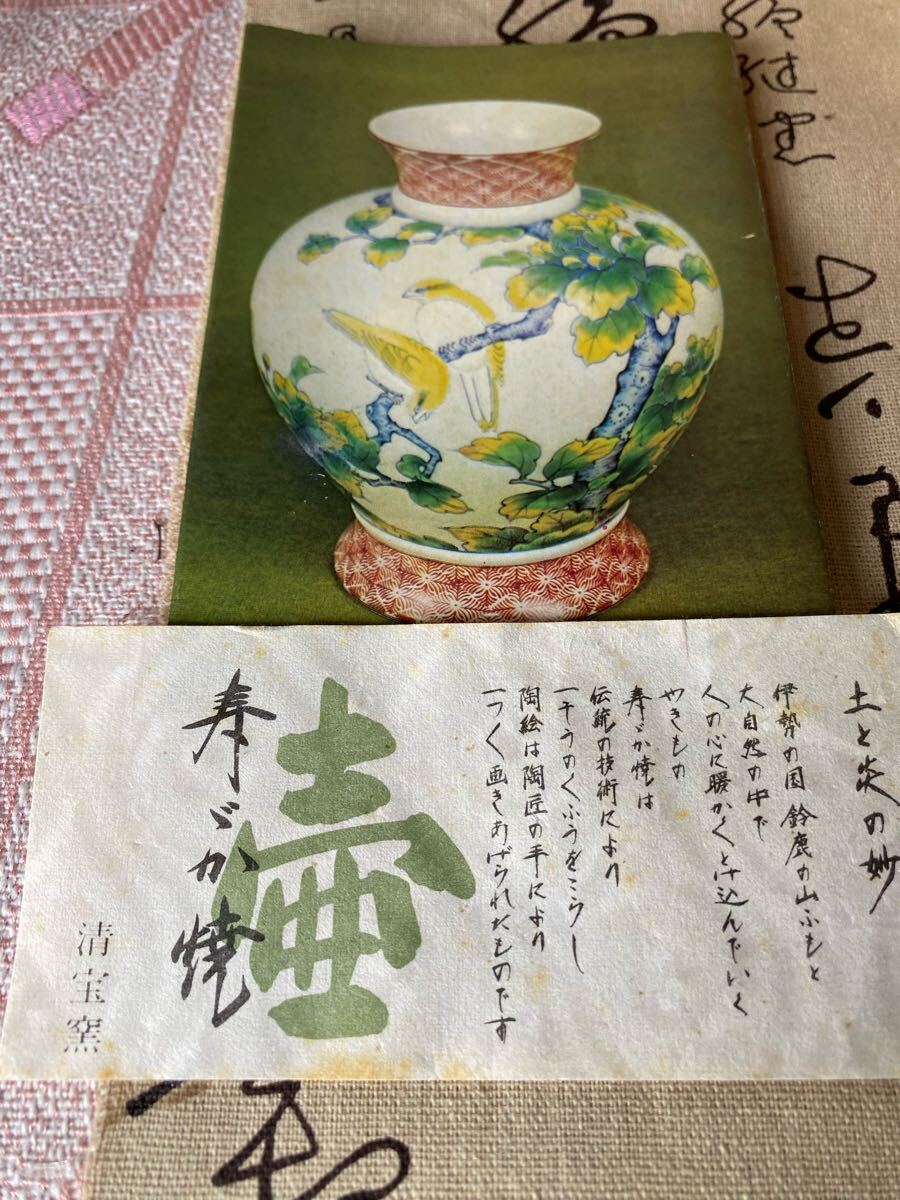 土と炎の妙
伊勢の国 鈴鹿の山ふもと
大自然の中で
人の心に暖かくとけ込んでいく
やきもの
寿゛か焼は
伝統の技術により
一千うのくふうをこらし
陶絵は陶匠の手により
一つ〱画きあげられたものです
壷
寿゛か焼
清宝窯